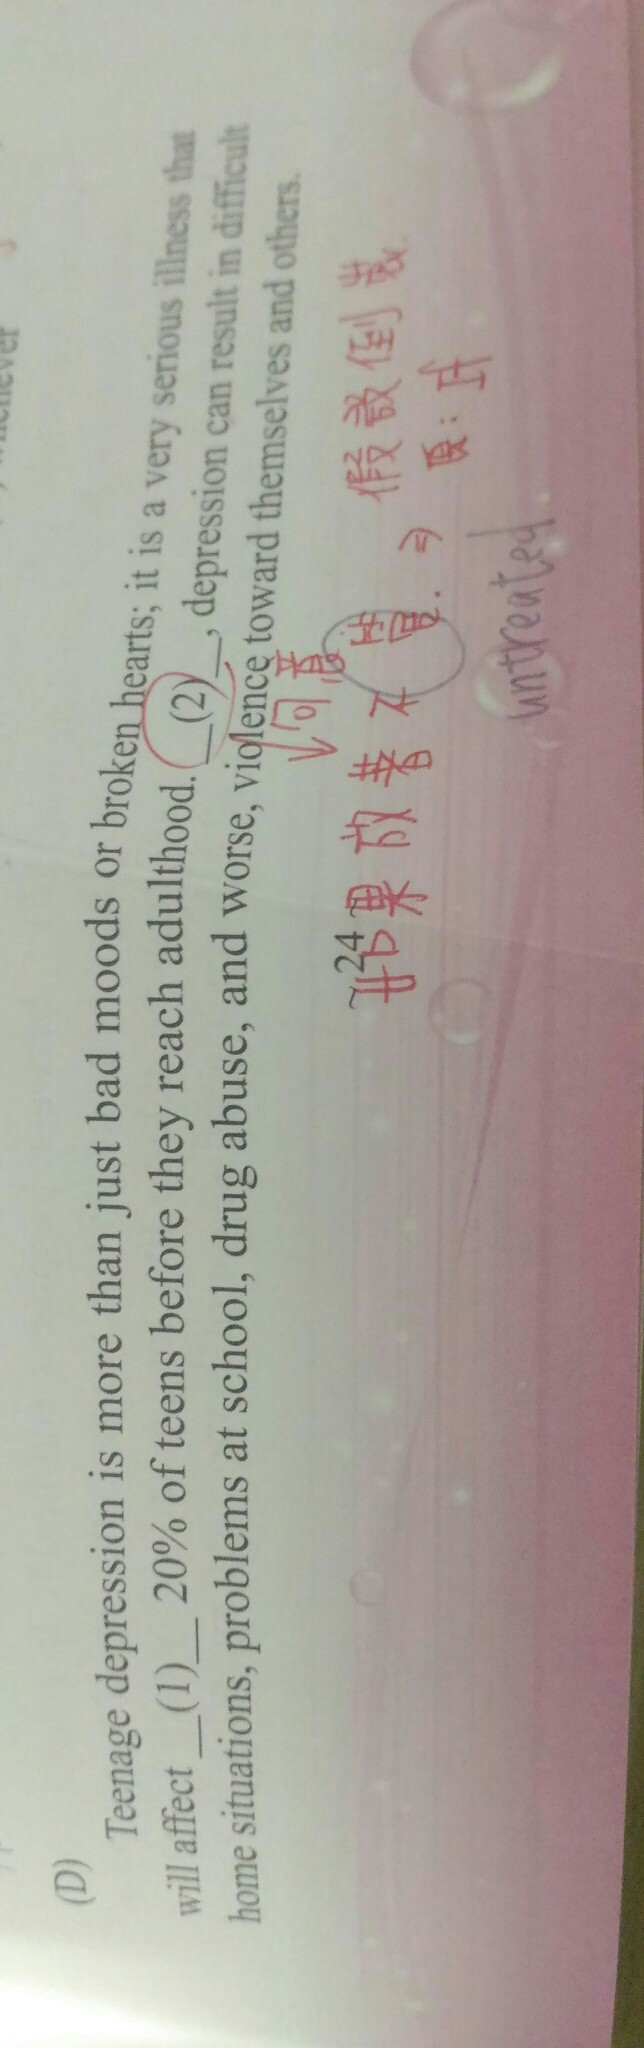 (D)
Teenage depression is more than just bad moods or broken hearts; it is a very serious illness that
will affect __(1)__ 20% of teens before they reach adulthood. __(2)__, depression can result in difficult
home situations, problems at school, drug abuse, and worse, violence toward themselves and others.
同意
~24~
如果放著不管. ⇒ 假設倒裝.
untreated